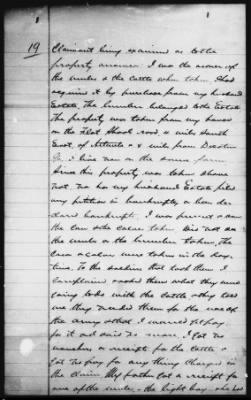 1
19 Claimant being examined as to the
property answers: I was the owner of
the mules & the cattle when taken. I had
acquired it by purchase from my husband
Estate. The lumber belonged to the Estate
The property was taken from my house
on the Flat Shoal road 6 miles South
East of Atlanta & 4 miles from Decatur
Ga. I live now on the same farm
Since this property was taken
nor has my husband Estate filed
any petition in bankruptcy or been de
clared bankrupt. I was present & saw
the cow & the calves taken. Did not see
the mules or the lumber taken. The
cow & calves were taken in the day
time. To the soldiers that took them I
complained & asked them what they were
going to do with the cattle & they told
me they needed them for the use of
the army & that I wanted pay
for it and said no more. I got no
voucher or receipt for the cattle &
got no pay for any thing charged in
the claim. My father got a receipt for
one of the mules - the light bay